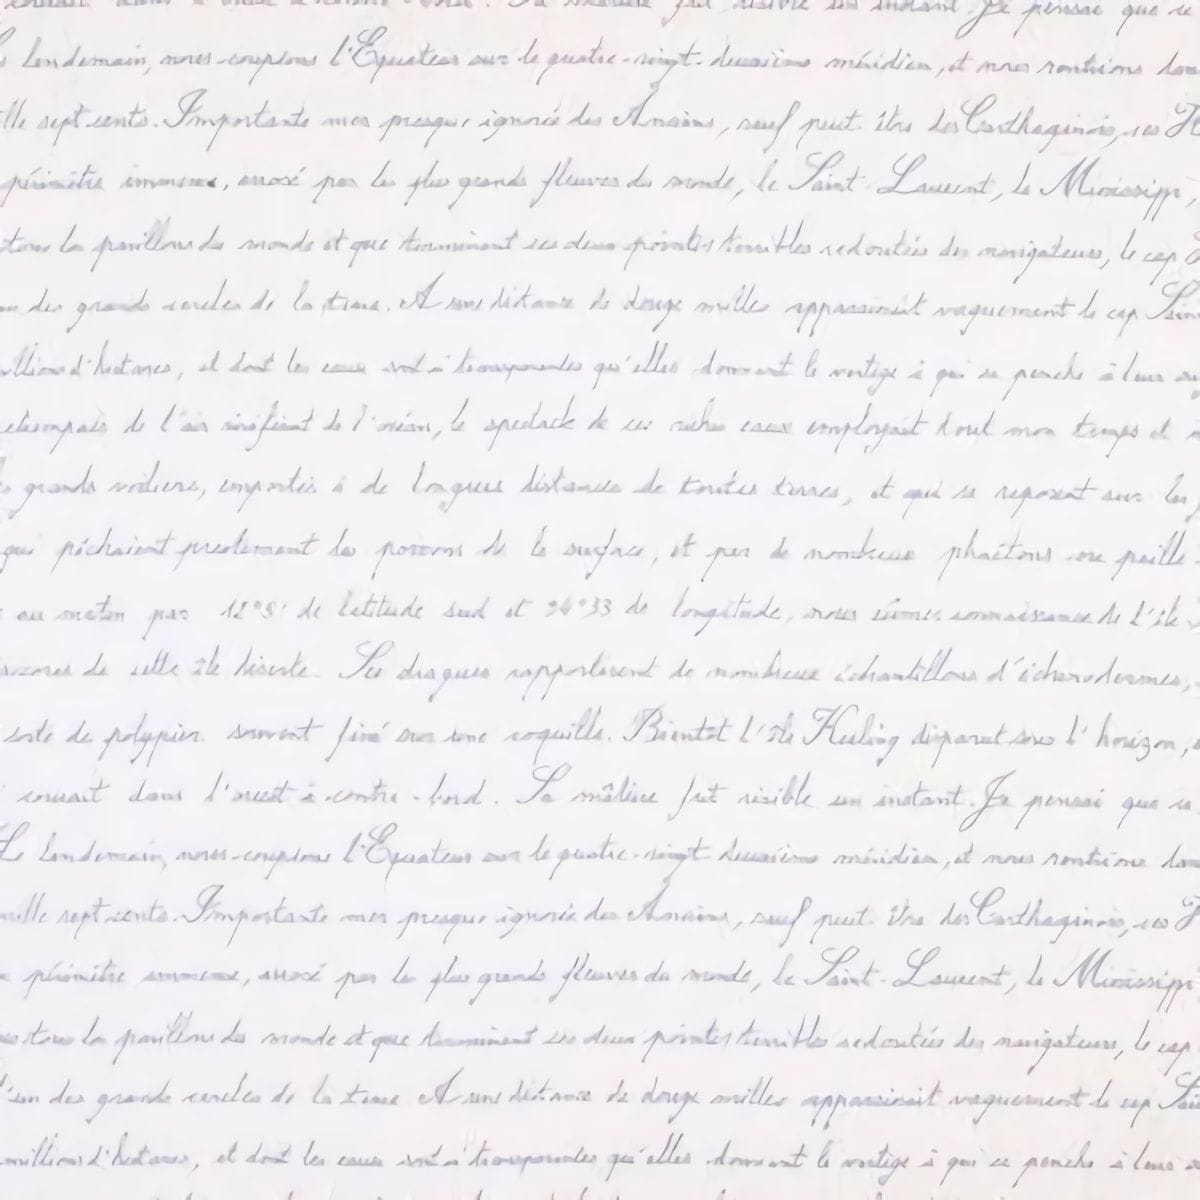 visible un instant. Je pensai que ce
lendemain, nous coupions l'Équateur sur le quatre-vingt-deuxième méridien, et nous rentrions dans
mille sept cents. Importante mer presque ignorée des Anciens, sauf peut-être des Carthaginois, ces
périmètre immense, arrosé par les plus grands fleuves du monde, le Saint-Laurent, le Mississipi,
tous les pavillons du monde et que terminent ces deux pointes terribles redoutées des navigateurs, le cap
un des grands cercles de la terre. A une distance de douze milles apparaissait vaguement le cap Saint
millions d'hectares, et dont les eaux sont si transparentes qu'elles donnent le vertige à qui se penche à leur
de l'air vivifiant de l'océan, le spectacle de ces riches eaux employait tout mon temps et
grands voiliers, emportés à de longues distances de toutes terres, et qui se reposent sur les
qui pêchaient prestement les poissons de la surface, et par de nombreux phaétons ou paille
au matin par 12°5' de latitude sud et 94°33 de longitude, nous eûmes connaissance de l'île
de cette île déserte. Ses dragues rapportèrent de nombreux échantillons d'échinodermes,
sorte de polypier souvent fixé sur une coquille. Bientôt l'île Keeling disparut sous l'horizon,
courait dans l'ouest à contre-bord. Sa mâture fut visible un instant. Je pensai que ce
Le lendemain, nous coupions l'Équateur sur le quatre-vingt deuxième méridien, et nous rentrions dans
mille sept cents. Importante mer presque ignorée des Anciens, sauf peut être des Carthaginois, ces
périmètre immense, arrosé par les plus grands fleuves du monde, le Saint-Laurent, le Mississipi
tous les pavillons du monde et que terminent ces deux pointes terribles redoutées des navigateurs, le cap
l'un des grands cercles de la terre A une distance de douze milles apparaissait vaguement le cap
millions d'hectares, et dont les eaux sont si transparentes qu'elles donnent le vertige à qui se penche à leur